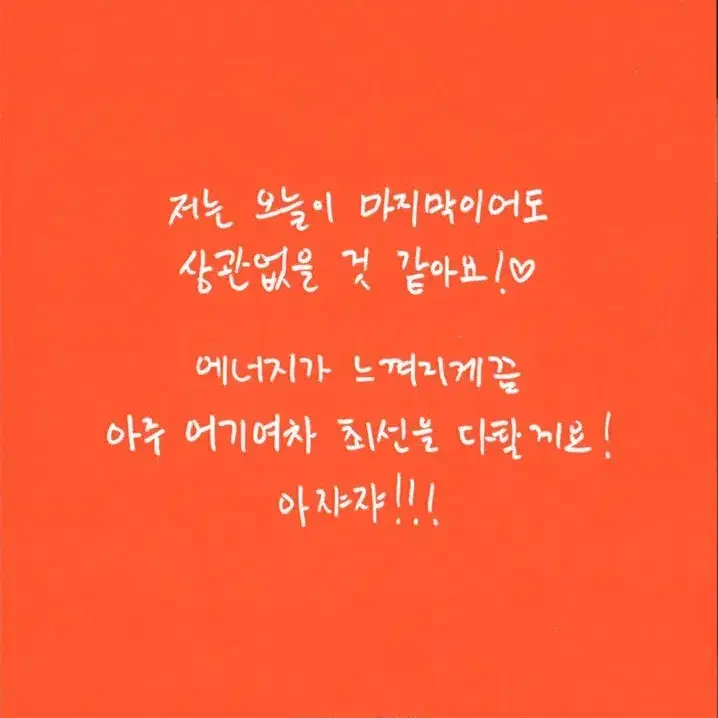 저는 오늘이 마지막이어도
상관없을 것 같아요!♡
에너지가 느껴지게끔
아주 어기여차 최선을 다할게요!
아쟈쟈!!!